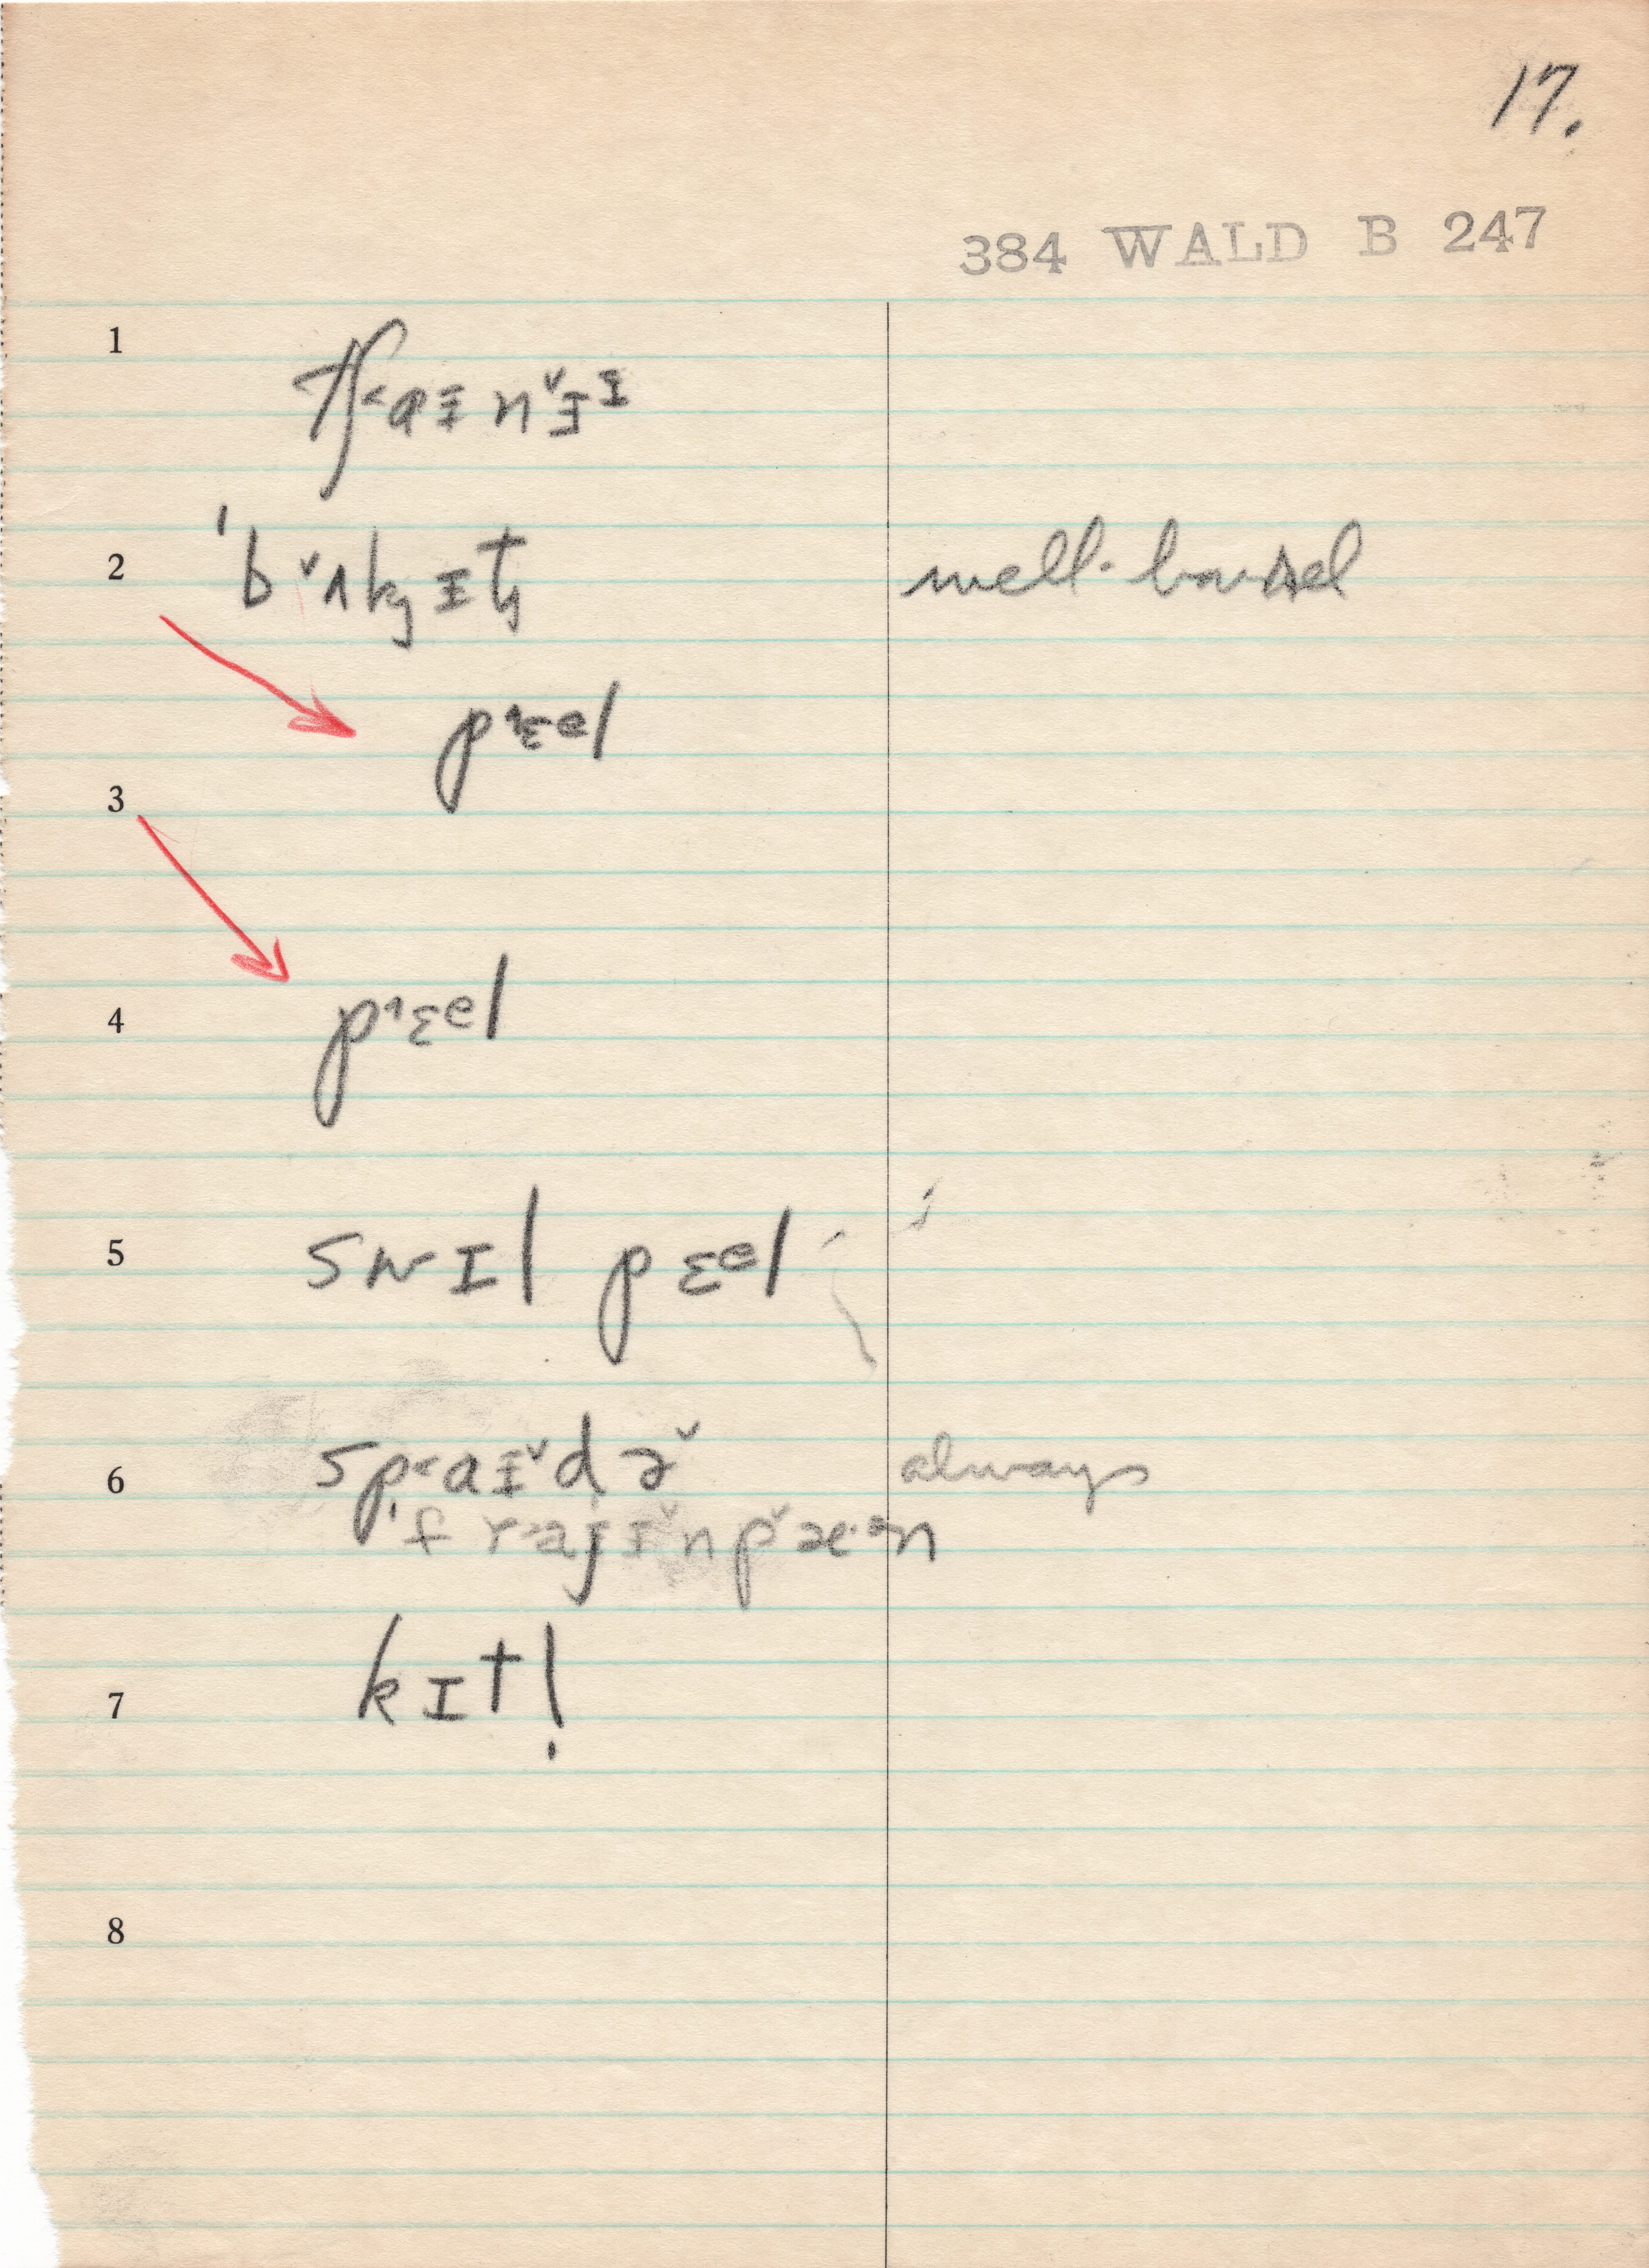 17.
384 WALD B 247
1 tʃ˂aɪnˇɨᶦ
2 ˈbˇʌkɪt well-bucket
pɛᵊl
3
4 pɛᵊl
5 swɪl pɛᵊl
6 sp˂aɪˇdɚˇ always
ˈfraɪɪˇnpˇæᵊn
7 kɪt!
8